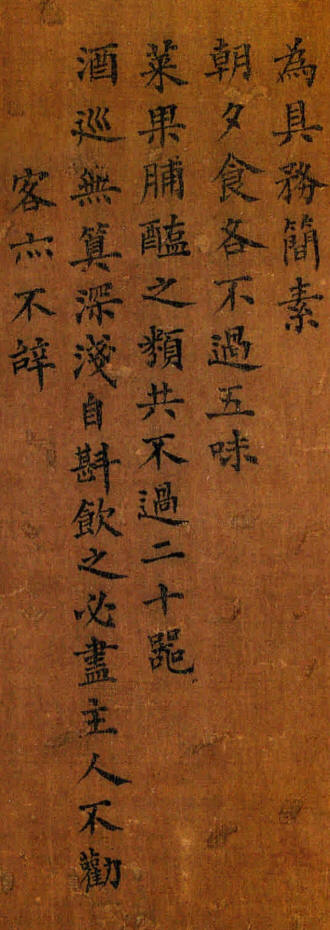 為具務簡素
朝夕食各不過五味
菜果脯醢之類共不過二十器
酒巡無算深淺自斟飲之必盡主人不勸
客亦不辞